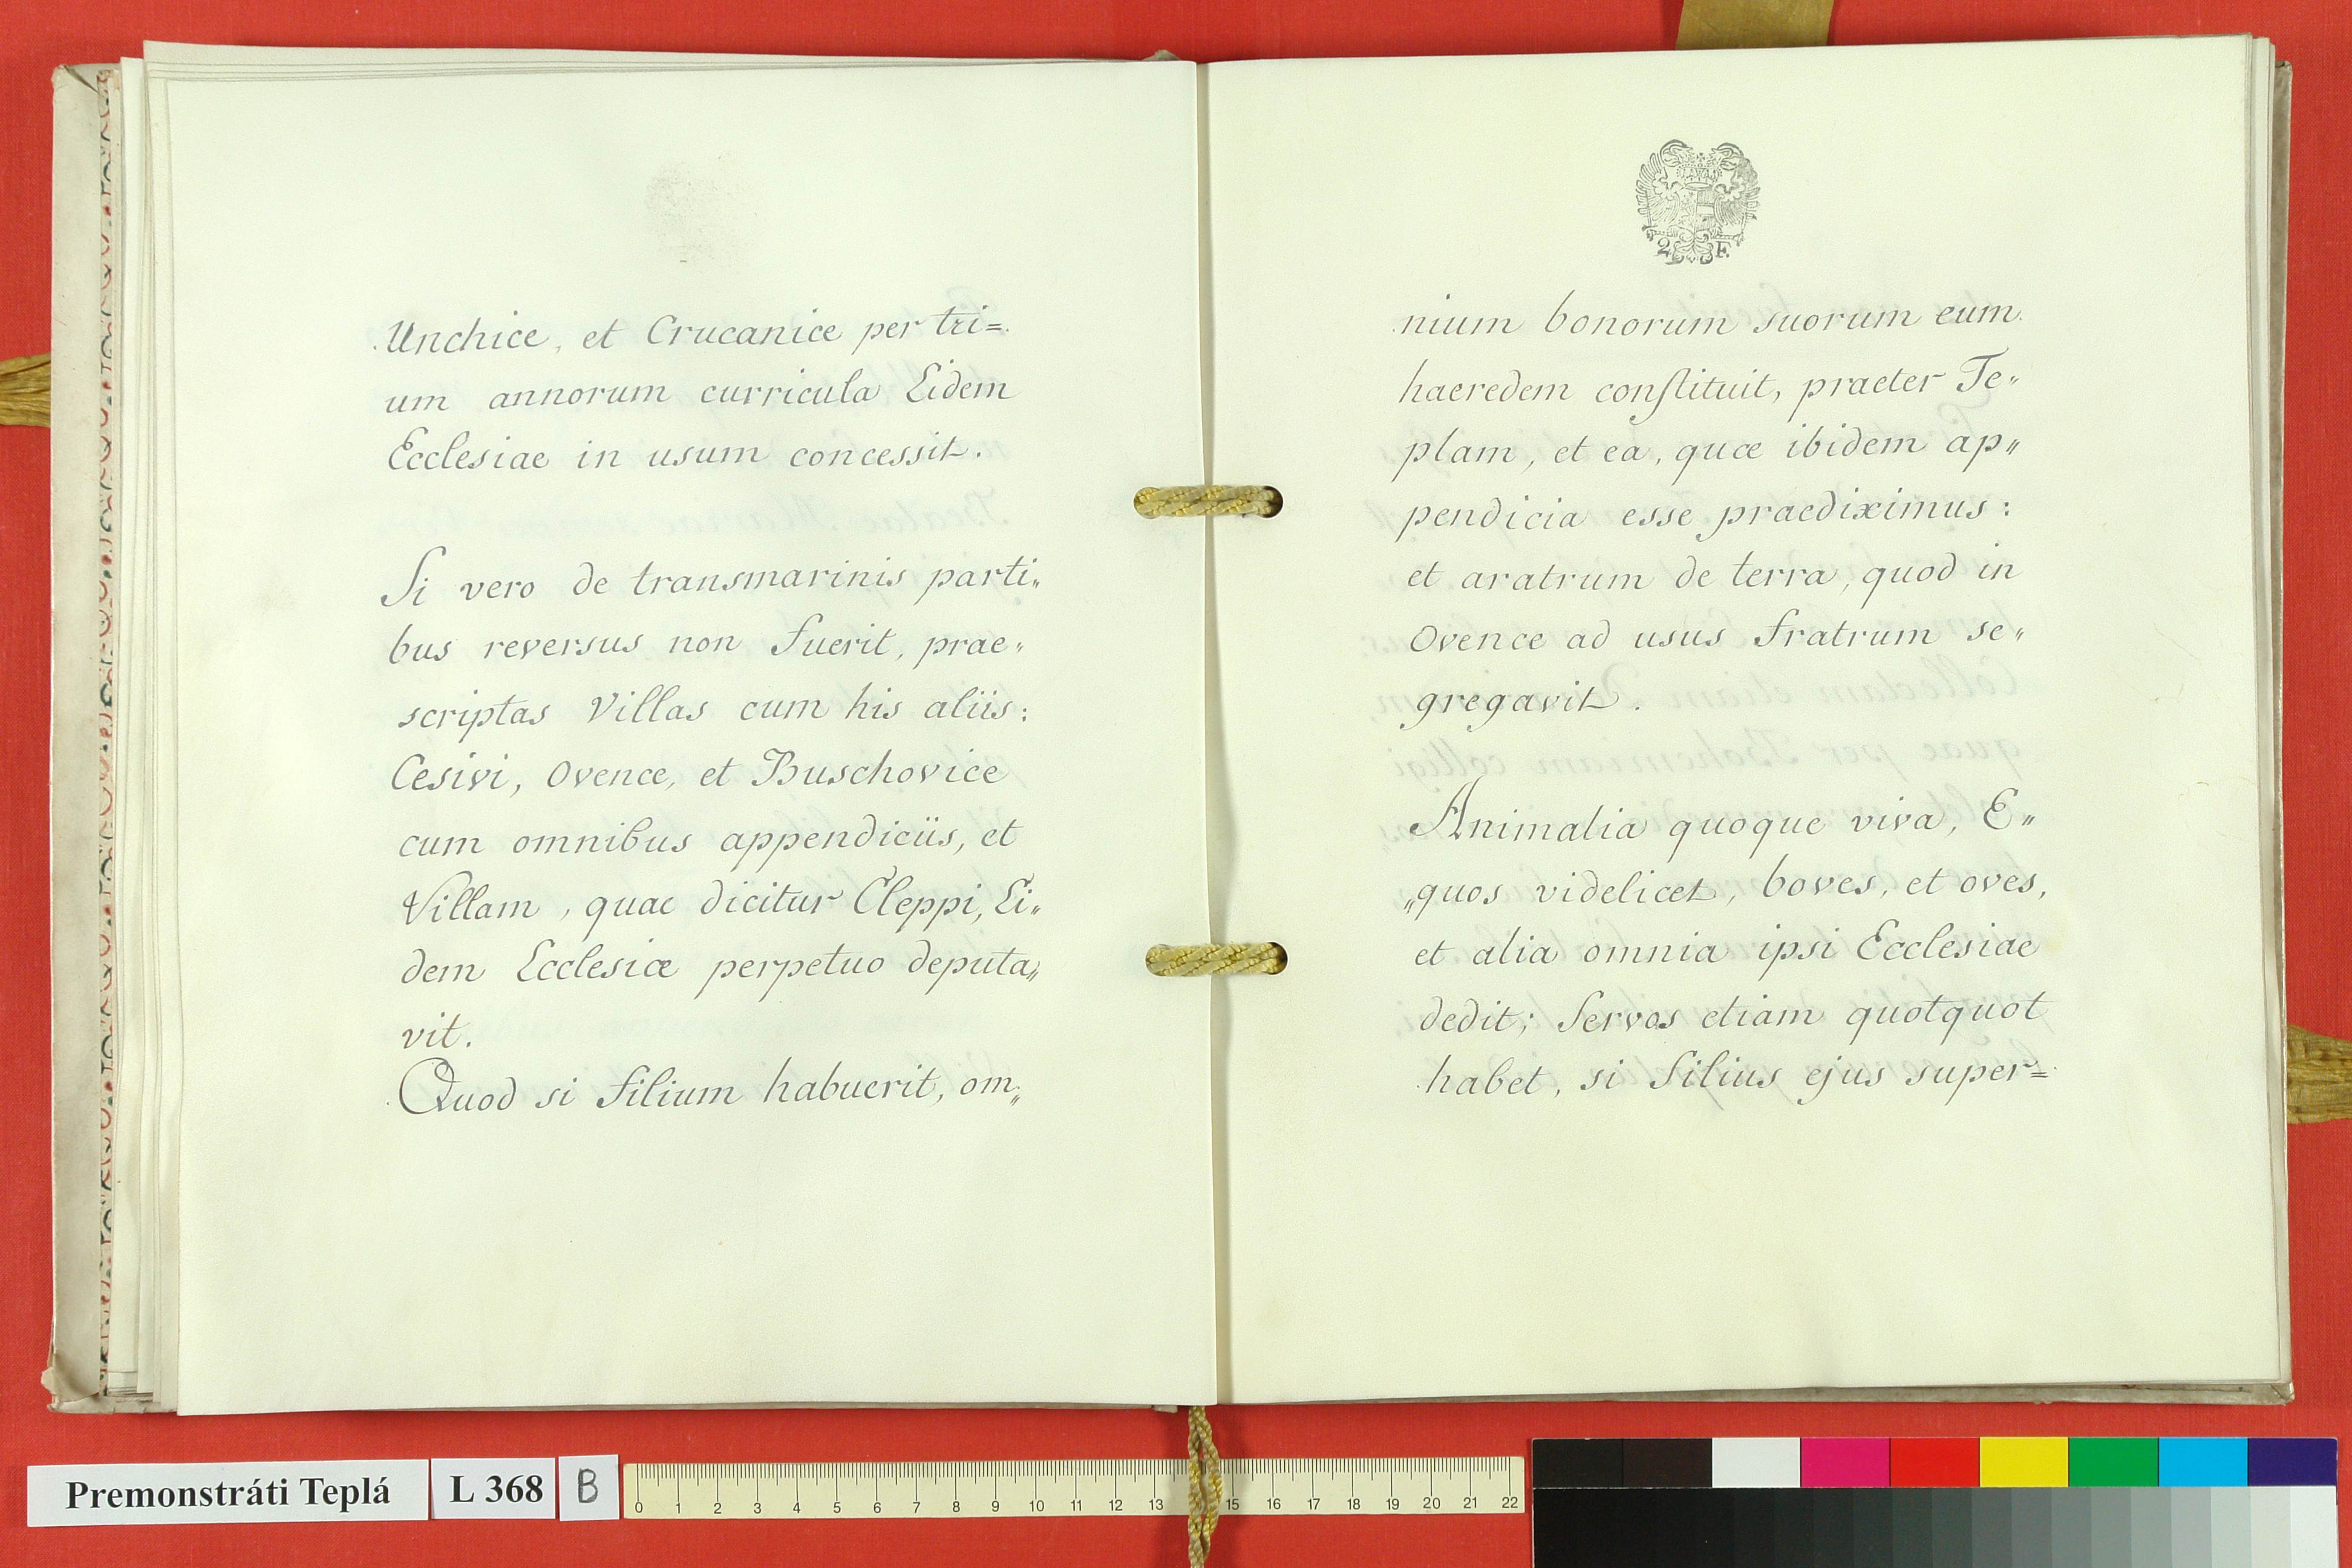 Unchice, et Crucanice per tri=
um annorum curricula Eidem
Ecclesiae in usum concessit.
Si vero de transmarinis parti„
bus reversus non fuerit, prae„
scriptas Villas cum his aliis:
Cesivi, Ovence, et Buschovice
cum omnibus appendiciis, et
Villam, quae dicitur Cleppi, Ei„
dem Ecclesiæ perpetuo deputa„
vit.
Quod si filium habuerit, om„
2 F.
nium bonorum suorum eum
haeredem conſtituit, praeter Te„
plam, et ea, quæ ibidem ap„
pendicia esse praediximus:
et aratrum de terra, quod in
Ovence ad usus fratrum se„
gregavit.
Animalia quoque viva, E„
„quos videlicet, boves, et oves,
et alia omnia ipsi Ecclesiae
dedit; Servos etiam quotquot
habet, si filius ejus super=
Premonstráti Teplá L 368 B
0 1 2 3 4 5 6 7 8 9 10 11 12 13 15 16 17 18 19 20 21 22